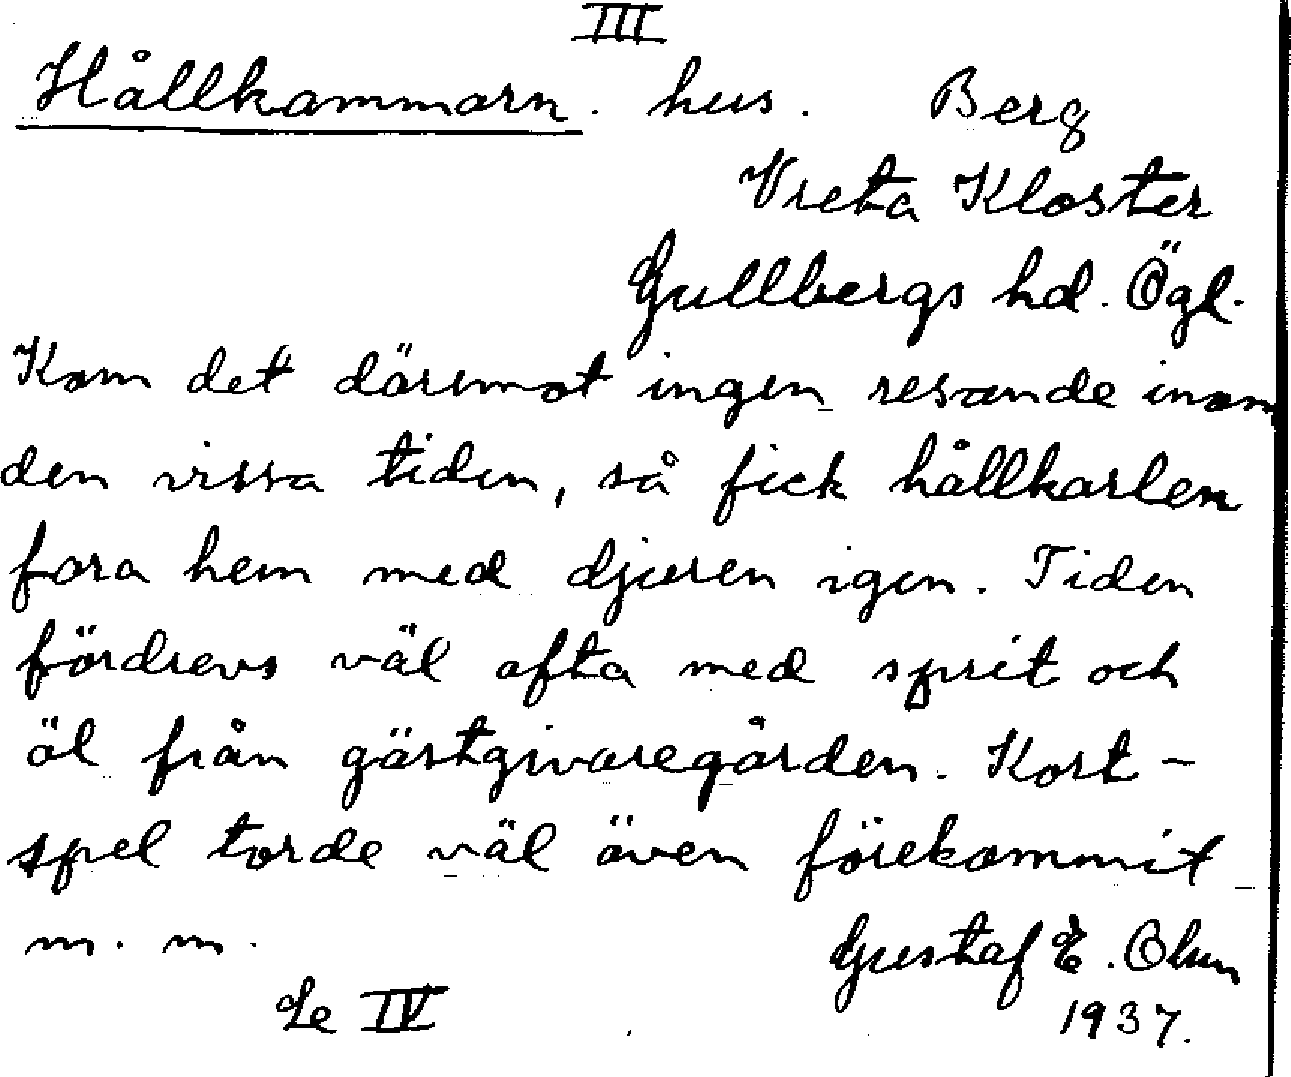 III
Hållkammarn. hus. Berg
Vreta Kloster
Gullbergs hd. Ögl.
Kom det däremot ingen resande inom
den vissa tiden, så fick hållkarlen
fara hem med djuren igen. Tiden
fördrevs väl ofta med sprit och
öl från gästgivaregården. Kort-
spel torde väl även förekommit
m. m.
Gustaf E. Olun
Se IV
1937.